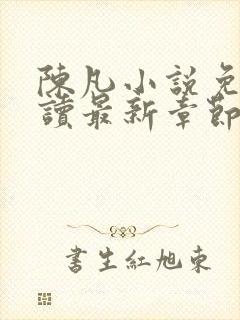 陳凡小說免
讀最新章節
書生紅旭東